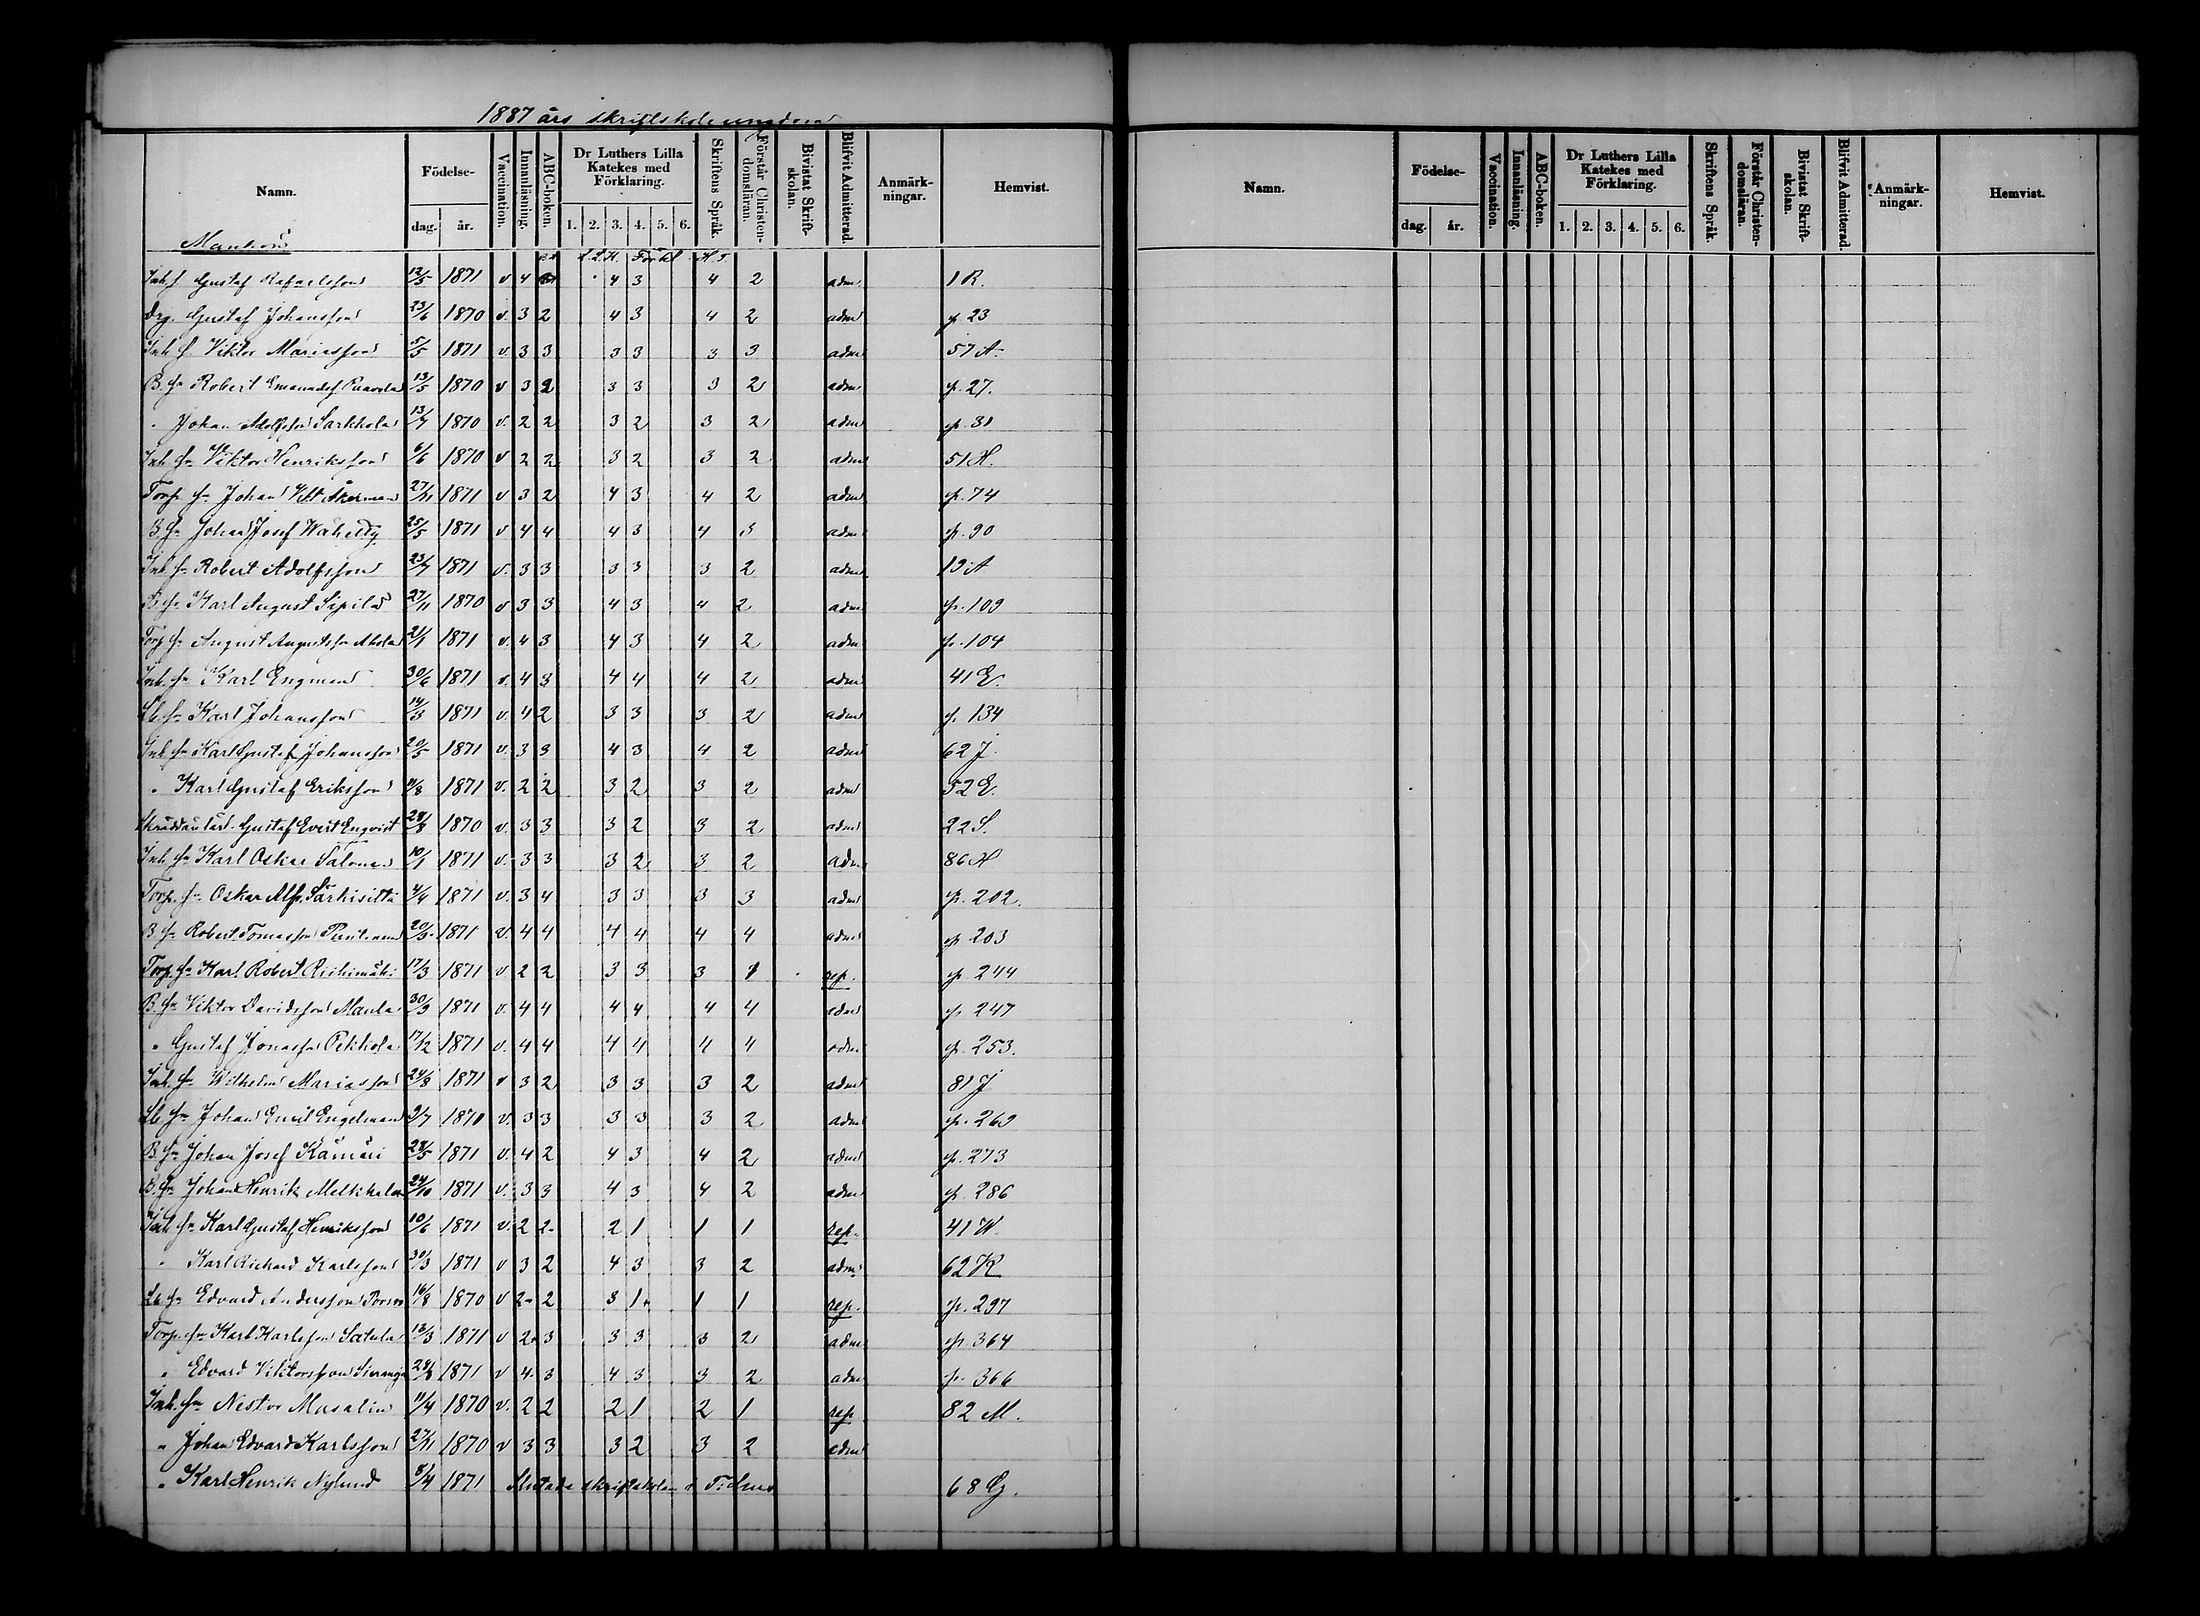 1887 års skriftskoleungdom
Namn. Födelse- dag. år. Vaccination. Innanläsning. ABC-boken. Dr Luthers Lilla Katekes med Förklaring. 1. 2. 3. 4. 5. 6. Skriftens Språk. Förstår Christendomsläran. Bivistat Skriftskolan. Blifvit Admitterad. Anmärkningar. Hemvist.
Mankön
L.K. Förkl. H.S.
Inh. s. Gustaf Rafaelsson 12/5 1871 v 4 4 3 4 2 adm 1 R.
Drg. Gustaf Johansson 23/6 1870 v. 3 2 4 3 4 2 adm p. 23
Inh. s. Viktor Mariasson 5/5 1871 v. 3 3 3 3 3 3 adm 57 A.
B. sn Robert Emanuelss. 13/5 1870 v 3 2 3 3 3 2 adm p. 27.
" Johan Adolfsson Sarkhola 13/7 1870 v. 2 2 3 2 3 2 adm p. 31
Inh. sn Viktor Henriksson 6/6 1870 v 2 2 3 2 3 2 adm 51 H.
Torp. sn Johan Vilh. Åkerman 27/11 1871 v 3 2 4 3 4 2 adm p. 74
B. sn Johan Josef 25/5 1871 v 4 4 4 3 4 3 adm p. 90
Inh. sn Robert Adolfsson 23/7 1871 v. 3 3 3 3 3 2 adm 19 A
B. sn Karl August Sipilä 27/11 1870 v 3 3 4 3 4 2 adm p. 109
Torp. sn August Augustsson Ahola 21/1 1871 v. 4 3 4 3 4 2 adm p. 104
Inh. sn Karl Engman 30/6 1871 v. 4 3 4 4 4 2 adm 41 E.
Lb. sn Karl Johansson 14/3 1871 v. 4 2 3 3 3 2 adm p. 134
Inh. sn Karl Gustaf Johansson 20/5 1871 v. 3 3 4 3 4 2 adm 62 J.
" Karl Gustaf Eriksson 11/8 1871 v. 2 2 3 2 3 2 adm 52 E.
Skräddarlärl. Gustaf Evert Enqvist 28/8 1870 v. 3 3 3 2 3 2 adm 22 S.
Inh. sn Karl Oskar Salomo 10/1 1871 v. 3 3 3 2 3 2 adm 86 H
Torp. sn Oskar Alfr. Särkisilta 4/4 1871 v. 3 4 3 3 3 3 adm p. 202.
B. sn Robert Tomasson 20/3 1871 v. 4 4 4 4 4 4 adm p. 203
Torp. sn Karl Robert Riihimäki 17/3 1871 v 2 2 3 3 3 1 rep. p. 244
B. sn Viktor Davidsson Maula 30/9 1871 v. 4 4 4 4 4 4 adm p. 247
" Gustaf Jonasson Pekkola 17/12 1871 v. 4 4 4 4 4 4 adm p. 253.
Inh. sn Wilhelm Mariasson 24/8 1871 v 3 2 3 3 3 2 adm 81 J
Lb. sn Johan Emil Engelman 9/7 1870 v. 3 3 3 3 3 2 adm p. 263
B. sn Johan Josef Kämäri 28/5 1871 v. 4 2 4 3 4 2 adm p. 273
B. sn Johan Henrik 24/10 1871 v. 3 3 4 3 4 2 adm p. 286
Inh. sn Karl Gustaf Henriksson 10/6 1871 v. 2 2 2 1 1 1 rep. 41 W.
" Karl Richard Karlsson 30/3 1871 v 3 2 4 3 3 2 adm 62 K
Lb. sn Edvard Andersson 16/8 1870 v 2 2 3 1 1 1 rep. p. 297
Torp. sn Karl Karlsson Satula 13/3 1871 v 2 3 3 3 3 2 adm p. 364
" Edvard Viktorsson 28/8 1871 v 4 3 4 3 3 2 adm p. 366
Inh. sn Nestor Musalin 11/4 1870 v. 2 2 2 1 2 1 rep 82 M.
" Johan Edvard Karlsson 27/11 1870 v 3 3 3 2 3 2 adm
" Karl Henrik Nylund 8/4 1871 skriftskolan i 68 G.
Namn. Födelse- dag. år. Vaccination. Innanläsning. ABC-boken. Dr Luthers Lilla Katekes med Förklaring. 1. 2. 3. 4. 5. 6. Skriftens Språk. Förstår Christendomsläran. Bivistat Skriftskolan. Blifvit Admitterad. Anmärkningar. Hemvist.